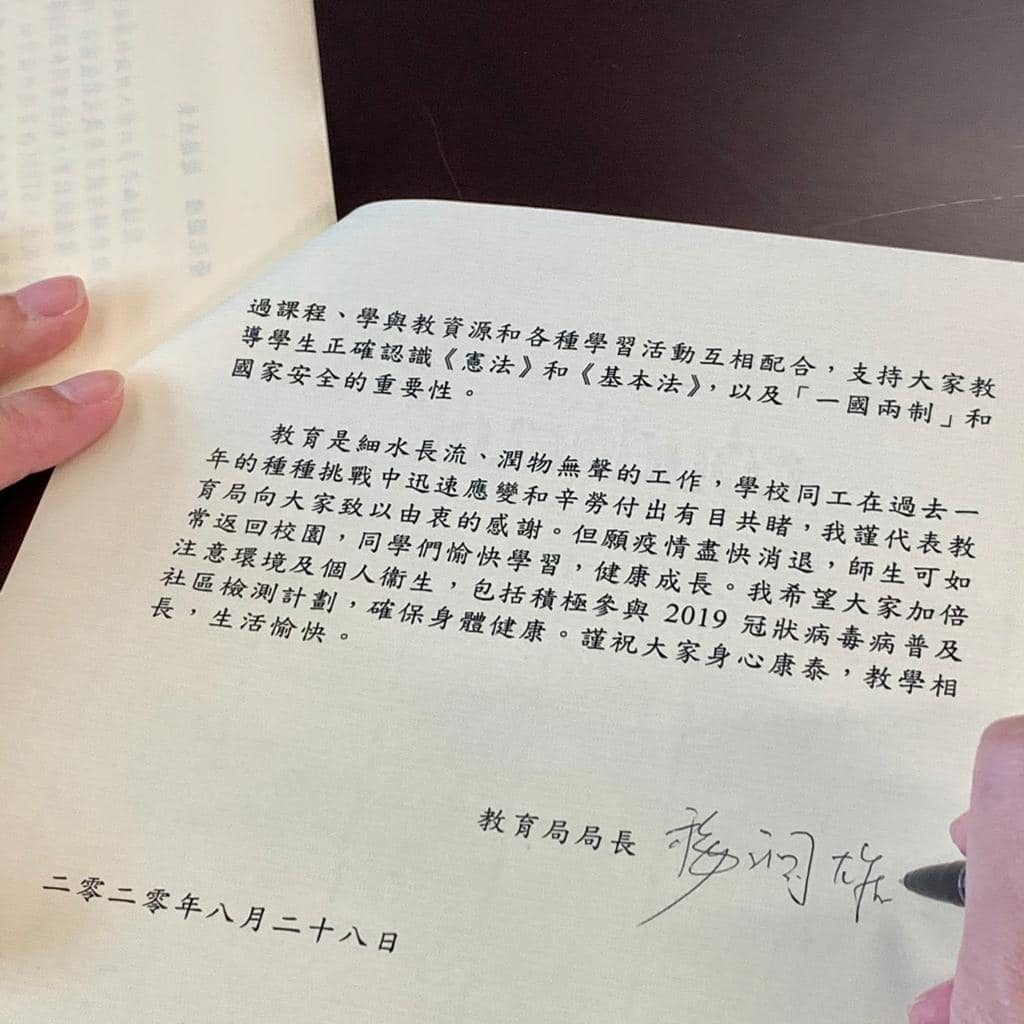 過課程、學與教資源和各種學習活動互相配合，支持大家教
導學生正確認識《憲法》和《基本法》，以及「一國兩制」和
國家安全的重要性。
教育是細水長流、潤物無聲的工作，學校同工在過去一
年的種種挑戰中迅速應變和辛勞付出有目共睹，我謹代表教
育局向大家致以由衷的感謝。但願疫情盡快消退，師生可如
常返回校園，同學們愉快學習，健康成長。我希望大家加倍
注意環境及個人衞生，包括積極參與 2019 冠狀病毒病普及
社區檢測計劃，確保身體健康。謹祝大家身心康泰，教學相
長，生活愉快。
教育局局長 楊潤雄
二零二零年八月二十八日